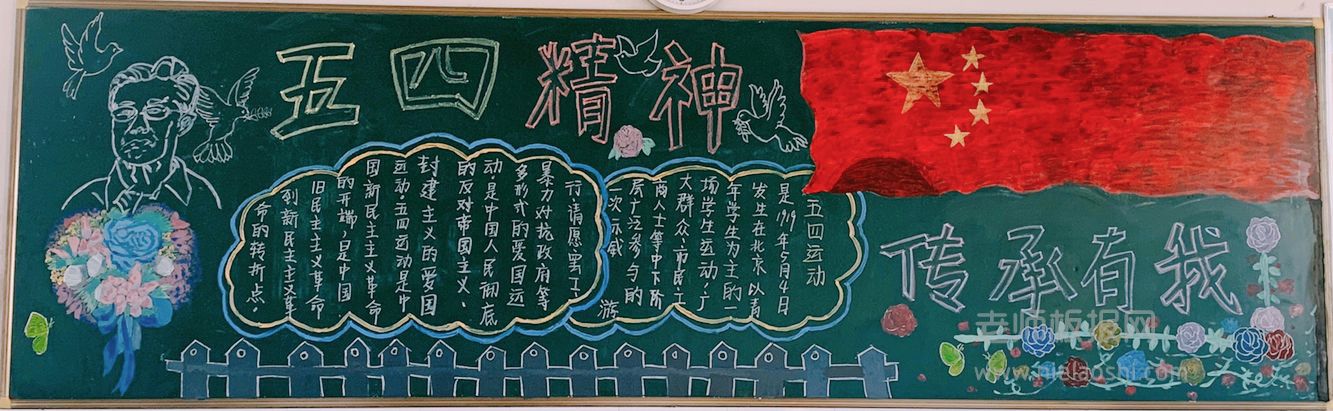 五四精神
五四运动
是1919年5月4日
发生在北京以青
年学生为主的一
场学生运动,广
大群众、市民、工
商人士等中下阶
层广泛参与的
一次示威游
行、请愿、罢工、
暴力对抗政府等
多形式的爱国运
动,是中国人民彻底
的反对帝国主义、
封建主义的爱国
运动。五四运动是中
国新民主主义革命
的开端,是中国
旧民主主义革命
到新民主主义革
命的转折点。
传承有我
老师板报网